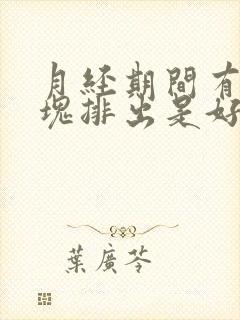 月经期間有
塊排出是好
葉廣芩